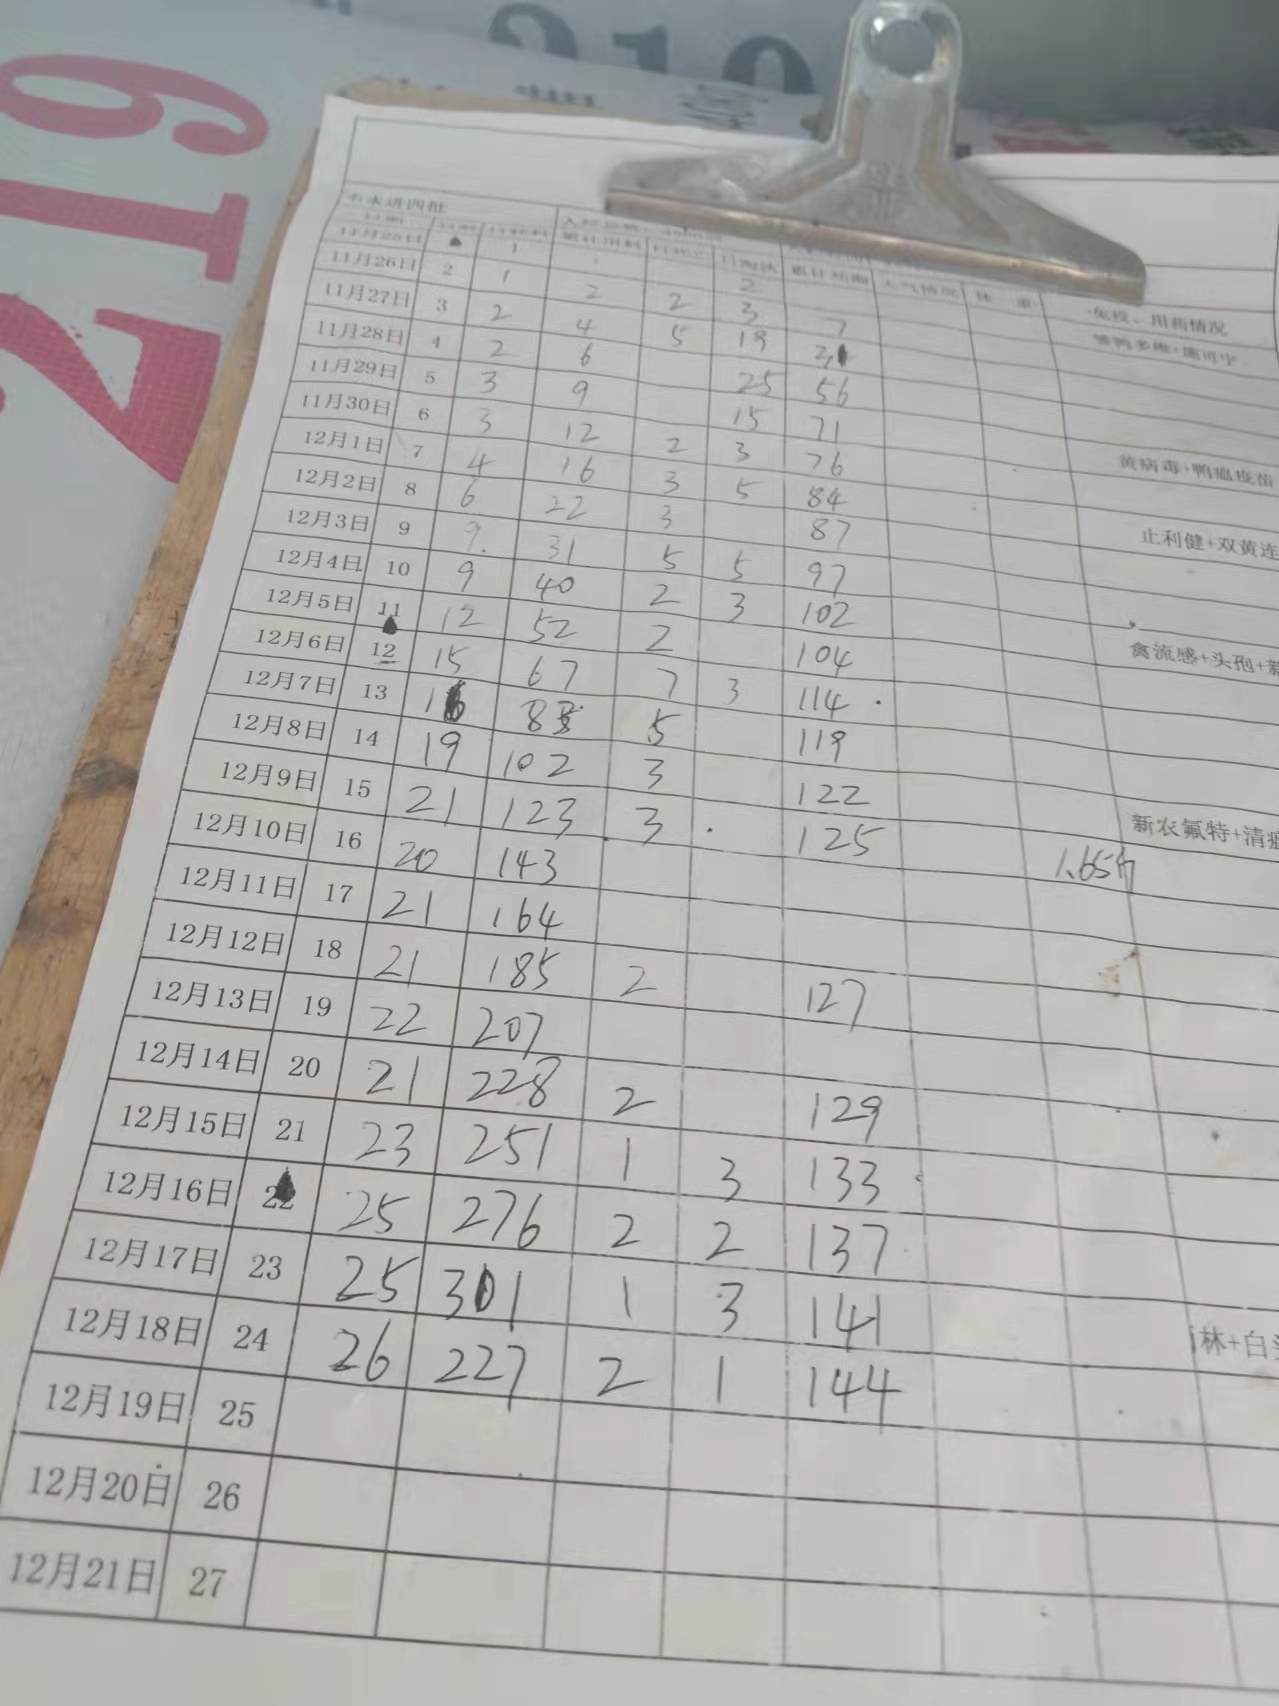 219
612
11月25日 1
11月26日 2 1 2 2
11月27日 3 2 4 2 3 7
11月28日 4 2 6 5 19 31
11月29日 5 3 9 25 56
11月30日 6 3 12 15 71
12月1日 7 4 16 2 3 76
12月2日 8 6 22 3 5 84
12月3日 9 9 31 3 87
12月4日 10 9 40 5 5 97
12月5日 11 12 52 2 3 102
12月6日 12 15 67 2 104
12月7日 13 16 83 7 3 114
12月8日 14 19 102 5 119
12月9日 15 21 123 3 122
12月10日 16 20 143 3 125
12月11日 17 21 164
12月12日 18 21 185
12月13日 19 22 207 2 127
12月14日 20 21 228
12月15日 21 23 251 2 129
12月16日 22 25 276 1 3 133
12月17日 23 25 301 2 2 137
12月18日 24 26 227 1 3 141
2 1 144
12月19日 25
12月20日 26
12月21日 27
天气情况 体 重
免疫、用药情况
黄病毒+鸭瘟疫苗
止利健+双黄连
禽流感+头孢+
新农氟特+清
1.65斤
林+白